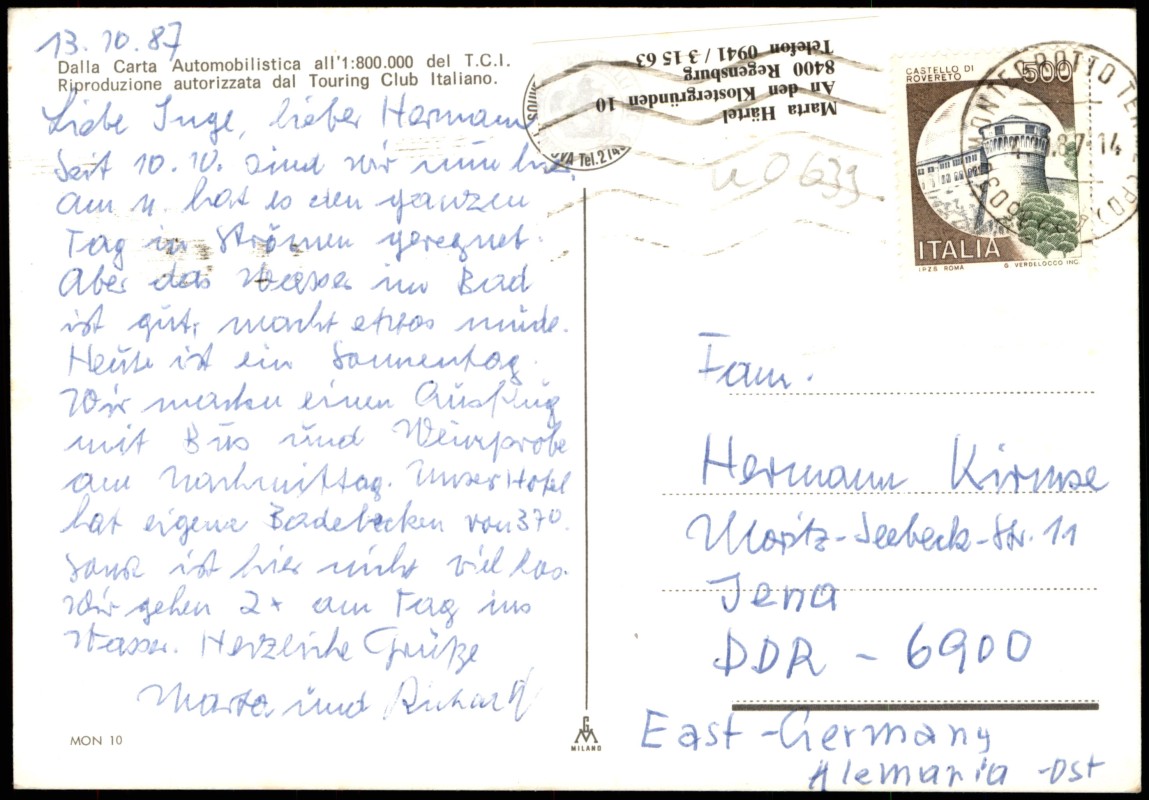 13.10.87
Dalla Carta Automobilistica all'1:800.000 del T.C.I.
Riproduzione autorizzata dal Touring Club Italiano.
Liebe Inge, lieber Hermann
Seit 10.10. sind wir nun hier.
Am 11. hat es den ganzen
Tag in Strömen geregnet.
Aber das Wasser im Bad
ist gut, macht etwas müde.
Heute ist ein Sonnentag.
Wir machen einen Ausflug
mit Bus und Weinprobe
am Nachmittag. Unser Hotel
hat eigene Badebecken von 37°.
Sonst ist hier nicht viel los.
Wir gehen 2x am Tag ins
Wasser. Herzliche Grüße
Marta und Richard
MON 10
MILANO
Marta Härtel
An den Klostergründen 10
8400 Regensburg
Telefon 0941 / 3 15 63
Tel. 214
U0 639
CASTELLO DI
ROVERETO
500
ITALIA
I.P.Z.S. ROMA G. VERDELOCCO INC.
MONTEGROTTO TERME
87-14
Fam.
Hermann Kirmse
Moritz-Seebeck-Str. 11
Jena
DDR - 6900
East-Germany
Alemania -Ost